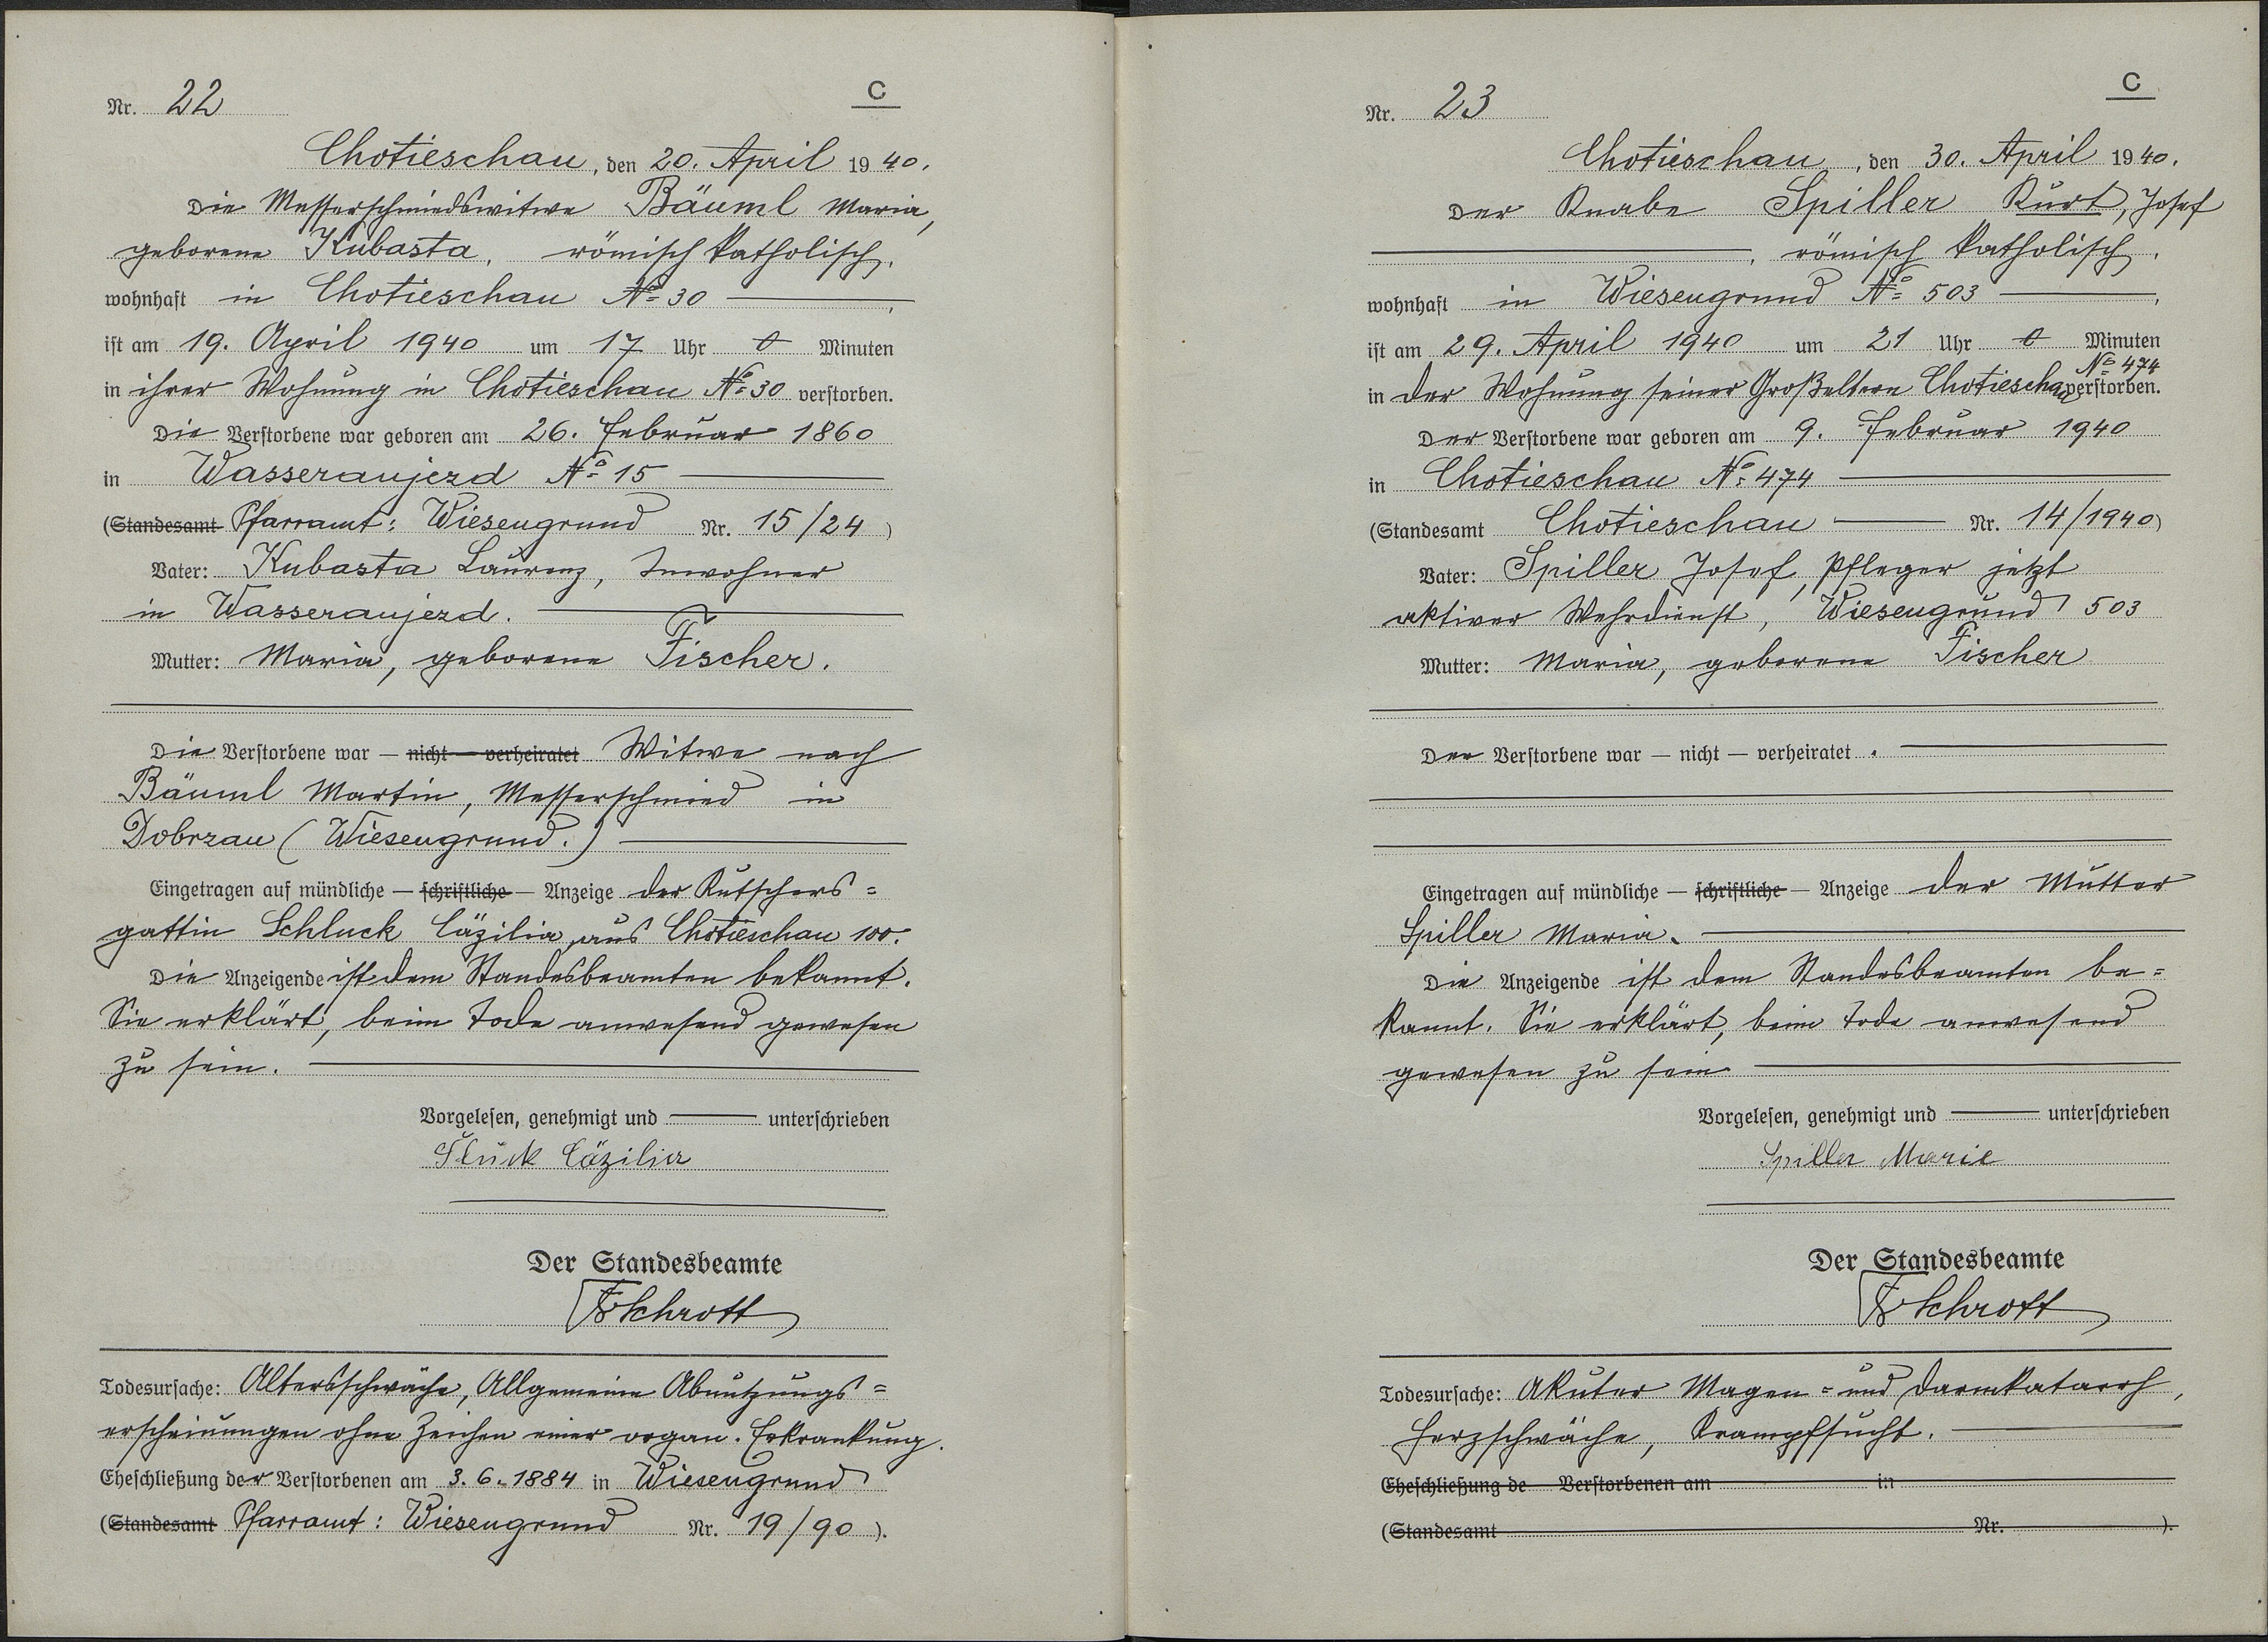 Nr. 22
C
Chotieschau, den 20. April 1940.
Die Messerschmiedswitwe Bäuml Maria,
geborene Kubasta, römisch katholisch,
wohnhaft in Chotieschau No 30
ist am 19. April 1940 um 17 Uhr 0 Minuten
in ihrer Wohnung in Chotieschau No 30 verstorben.
Die Verstorbene war geboren am 26. Februar 1860
in Wasseraujezd No 15
(Standesamt Pfarramt: Wiesengrund Nr. 15/24)
Vater: Kubasta Laurenz, Inwohner
in Wasseraujezd.
Mutter: Maria, geborene Fischer.
Die Verstorbene war — nicht — verheiratet Witwe nach
Bäuml Martin, Messerschmied in
Dobrzan (Wiesengrund.)
Eingetragen auf mündliche — schriftliche — Anzeige der Kutschers=
gattin Schluck Cäzilia, aus Chotieschau 100.
Die Anzeigende ist dem Standesbeamten bekannt.
Sie erklärt, beim Tode anwesend gewesen
zu sein.
Vorgelesen, genehmigt und unterschrieben
Šluck Cäzilia
Der Standesbeamte
Schrott
Todesursache: Altersschwäche, Allgemeine Abnützungs=
erscheinungen ohne Zeichen einer organ. Erkrankung.
Eheschließung der Verstorbenen am 3.6.1884 in Wiesengrund
(Standesamt Pfarramt: Wiesengrund Nr. 19/90).
Nr. 23
C
Chotieschau, den 30. April 1940.
Der Knabe Spiller Kurt, Josef
, römisch katholisch,
wohnhaft in Wiesengrund No 503
ist am 29. April 1940 um 21 Uhr 0 Minuten
No 474
in der Wohnung seiner Großeltern Chotieschau verstorben.
Der Verstorbene war geboren am 9. Februar 1940
in Chotieschau No 474
(Standesamt Chotieschau Nr. 14/1940)
Vater: Spiller Josef, Pfleger jetzt
aktiver Wehrdienst, Wiesengrund 503
Mutter: Maria, geborene Fischer
Der Verstorbene war — nicht — verheiratet.
Eingetragen auf mündliche — schriftliche — Anzeige der Mutter
Spiller Maria.
Die Anzeigende ist dem Standesbeamten be=
kannt. Sie erklärt, beim Tode anwesend
gewesen zu sein
Vorgelesen, genehmigt und unterschrieben
Spiller Marie
Der Standesbeamte
Schrott
Todesursache: Akuter Magen= und Darmkatarrh,
Herzschwäche, Krampfsucht.
Eheschließung de Verstorbenen am in
(Standesamt Nr. ).